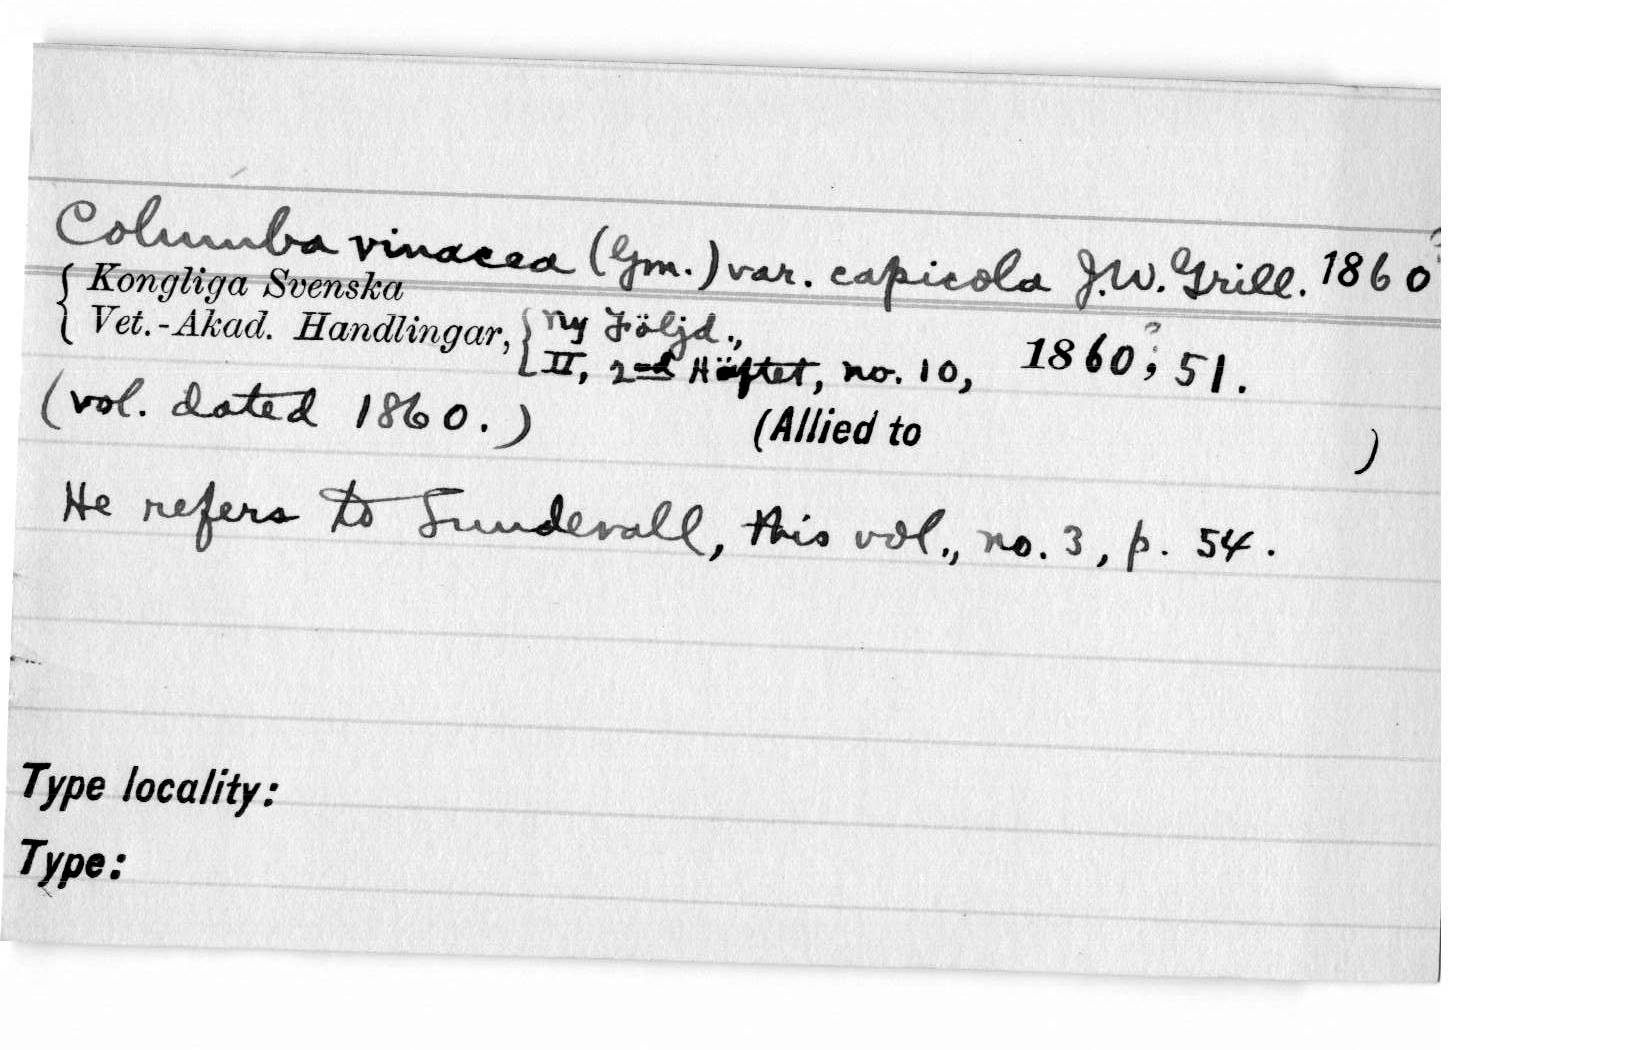 Columba vinacea (Gm.) var. capicola J.W. Grill. 1860?
{ Kongliga Svenska
Vet.-Akad. Handlingar, { Ny Följd.,
II, 2nd Häftet, no. 10, 1860?; 51.
(vol. dated 1860.) (Allied to )
He refers to Sundevall, this vol., no. 3, p. 54.
Type locality:
Type: